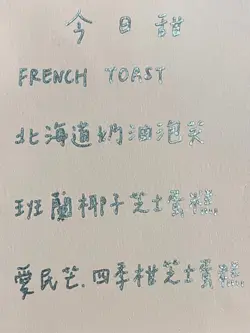 今日甜
FRENCH TOAST
北海道奶油泡芙
班蘭椰子芝士蛋糕
愛民芒.四季柑芝士蛋糕